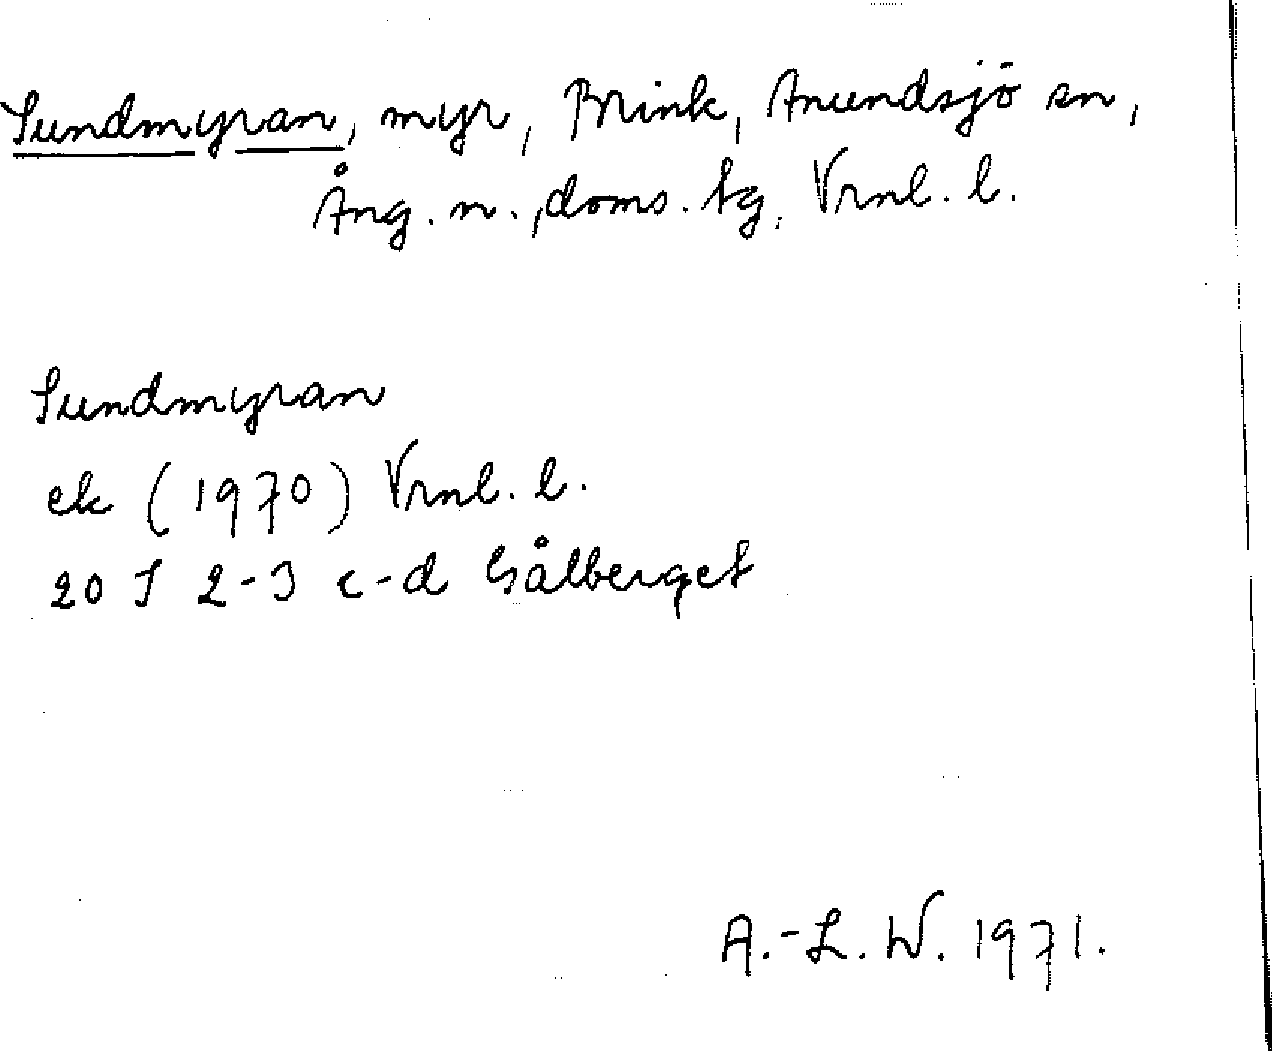 Sundmyran, myr, Brink, Anundsjö sn,
Ång. n., doms. tg, Vrnl. l.
Sundmyran
ek (1970) Vrnl. l.
20 J 2-3 c-d Gålberget
A.-L. W. 1971.